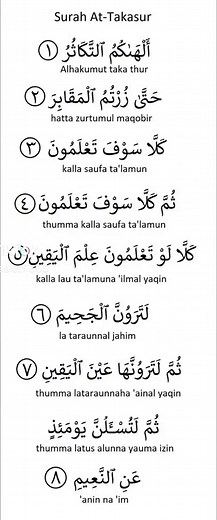 Surah At-Takasur
أَلْهَىٰكُمُ ٱلتَّكَاثُرُ ١
Alhakumut taka thur
حَتَّىٰ زُرْتُمُ ٱلْمَقَابِرَ ٢
hatta zurtumul maqobir
كَلَّا سَوْفَ تَعْلَمُونَ ٣
kalla saufa ta'lamun
ثُمَّ كَلَّا سَوْفَ تَعْلَمُونَ ٤
thumma kalla saufa ta'lamun
كَلَّا لَوْ تَعْلَمُونَ عِلْمَ ٱلْيَقِينِ ٥
kalla lau ta'lamuna 'ilmal yaqin
لَتَرَوُنَّ ٱلْجَحِيمَ ٦
la taraunnal jahim
ثُمَّ لَتَرَوُنَّهَا عَيْنَ ٱلْيَقِينِ ٧
thumma lataraunnaha 'ainal yaqin
ثُمَّ لَتُسْـَٔلُنَّ يَوْمَئِذٍ
thumma latus alunna yauma izin
عَنِ ٱلنَّعِيمِ ٨
'anin na 'im